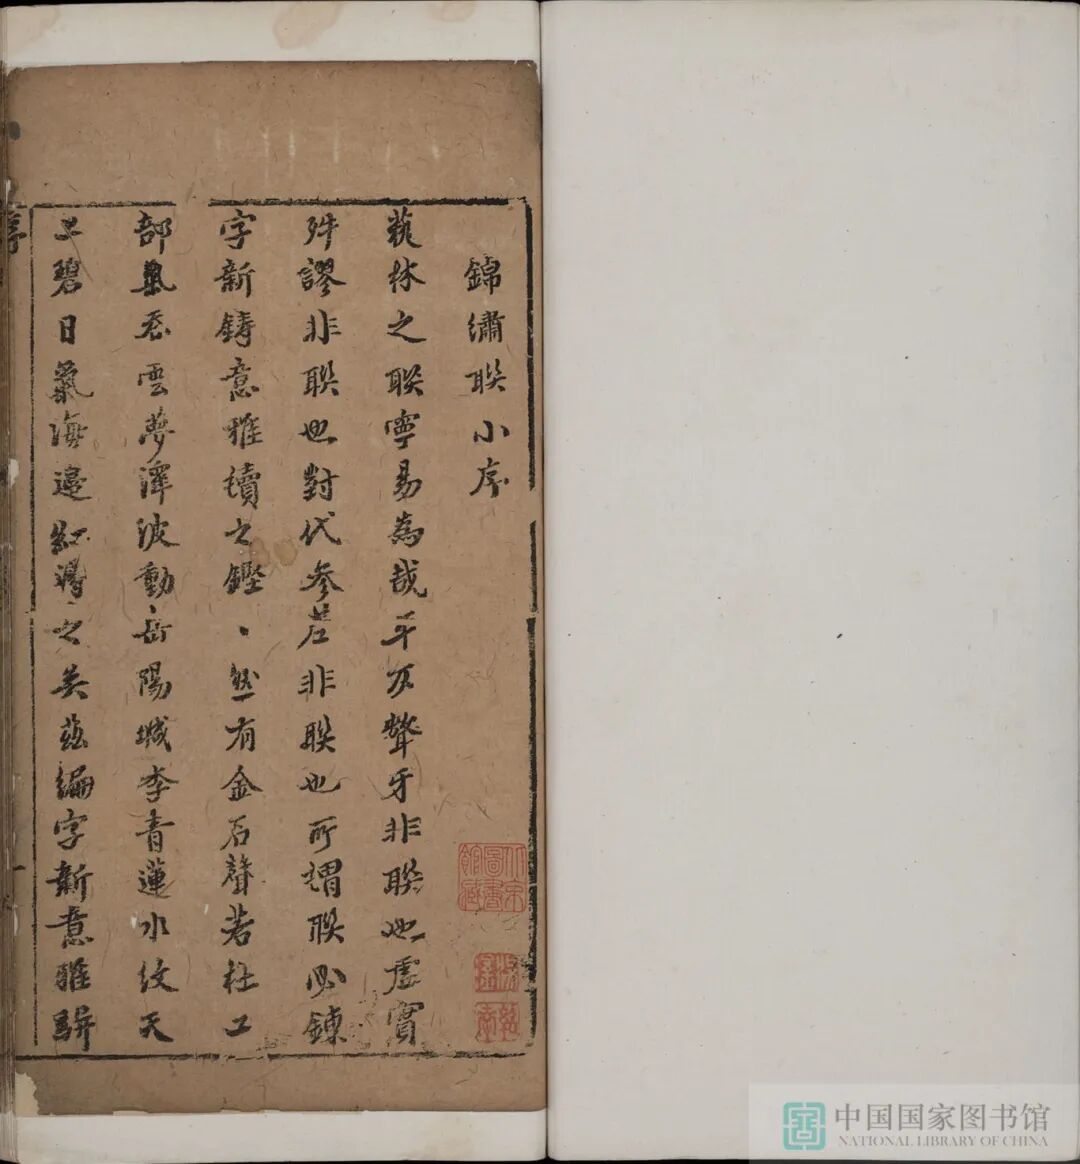 錦繡聯小序
藝林之聯寧易為哉平仄聱牙非聯也虛實
舛謬非聯也對代參差非聯也所謂聯必鍊
字新鑄意雅讀之鏗〻然有金石聲若杜工
部氣吞雲夢澤波動岳陽城李青蓮水紋天
上碧日氣海邊紅淂之矣茲編字新意雅駢
序
一
北京
圖書
館藏
中国国家图书馆
NATIONAL LIBRARY OF CHINA